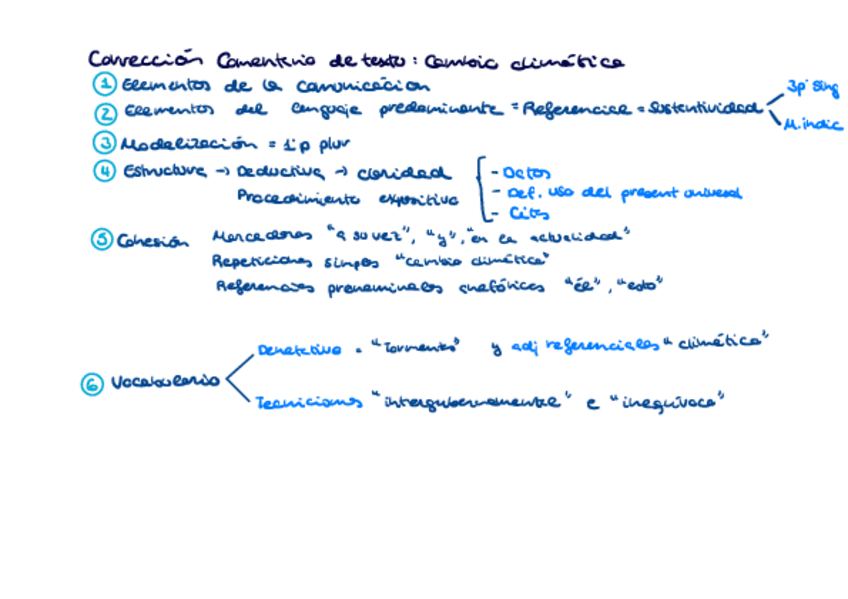 Corrección Comentario de texto: Cambio climático
① Elementos de la comunicación
② Elementos del lenguaje predominante = Referencial = Sustantividad
3p sing
M. indic
③ Modalización = 1ªp plur
④ Estructura → Deductiva → claridad
Procedimiento expositivo
- Datos
- Def. uso del present universal
- Citas
⑤ Cohesión Marcadores "a su vez", "y", "en la actualidad"
Repeticiones simples "cambio climático"
Referencias pronominales anafóricas "él", "esto"
⑥ Vocabulario
Denotativo = "Tormentas" y adj referenciales "climático"
Tecnicismos "intergubernamental" e "inequívoca"